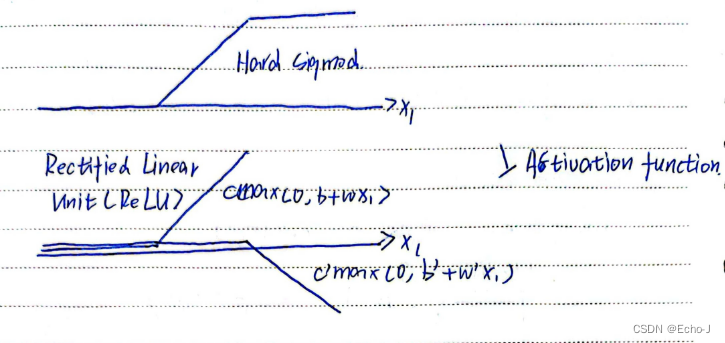 Hard Sigmod
x₁
Rectified Linear
Unit (ReLU)
cmax(0, b+wx₁)
} Activation function
x₁
c'max(0, b'+w'x₁)
CSDN @Echo-J